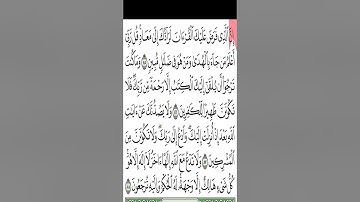 إِنَّ ٱلَّذِى فَرَضَ عَلَيْكَ ٱلْقُرْءَانَ لَرَآدُّكَ إِلَىٰ مَعَادٍ قُل رَّبِّىٓ
أَعْلَمُ مَن جَآءَ بِٱلْهُدَىٰ وَمَنْ هُوَ فِى ضَلَٰلٍ مُّبِينٍ ۝ وَمَا كُنتَ
تَرْجُوٓا۟ أَن يُلْقَىٰٓ إِلَيْكَ ٱلْكِتَٰبُ إِلَّا رَحْمَةً مِّن رَّبِّكَ فَلَا
تَكُونَنَّ ظَهِيرًا لِّلْكَٰفِرِينَ ۝ وَلَا يَصُدُّنَّكَ عَنْ ءَايَٰتِ
ٱللَّهِ بَعْدَ إِذْ أُنزِلَتْ إِلَيْكَ وَٱدْعُ إِلَىٰ رَبِّكَ وَلَا تَكُونَنَّ مِنَ
ٱلْمُشْرِكِينَ ۝ وَلَا تَدْعُ مَعَ ٱللَّهِ إِلَٰهًا ءَاخَرَ لَآ إِلَٰهَ إِلَّا هُوَ
كُلُّ شَىْءٍ هَالِكٌ إِلَّا وَجْهَهُۥ لَهُ ٱلْحُكْمُ وَإِلَيْهِ تُرْجَعُونَ ۝